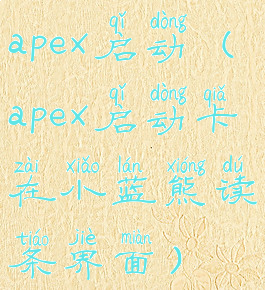 qǐ dòng
apex启动（
qǐ dòng qiǎ
apex启动卡
zài xiǎo lán xióng dú
在小蓝熊读
tiáo jiè miàn
条界面）